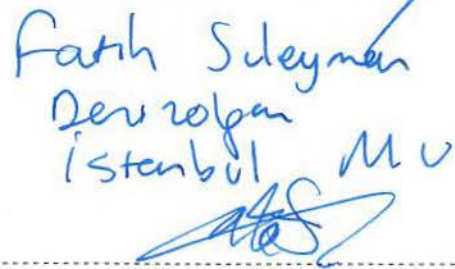 Fatih Süleyman
Denizolgun
İstanbul MV